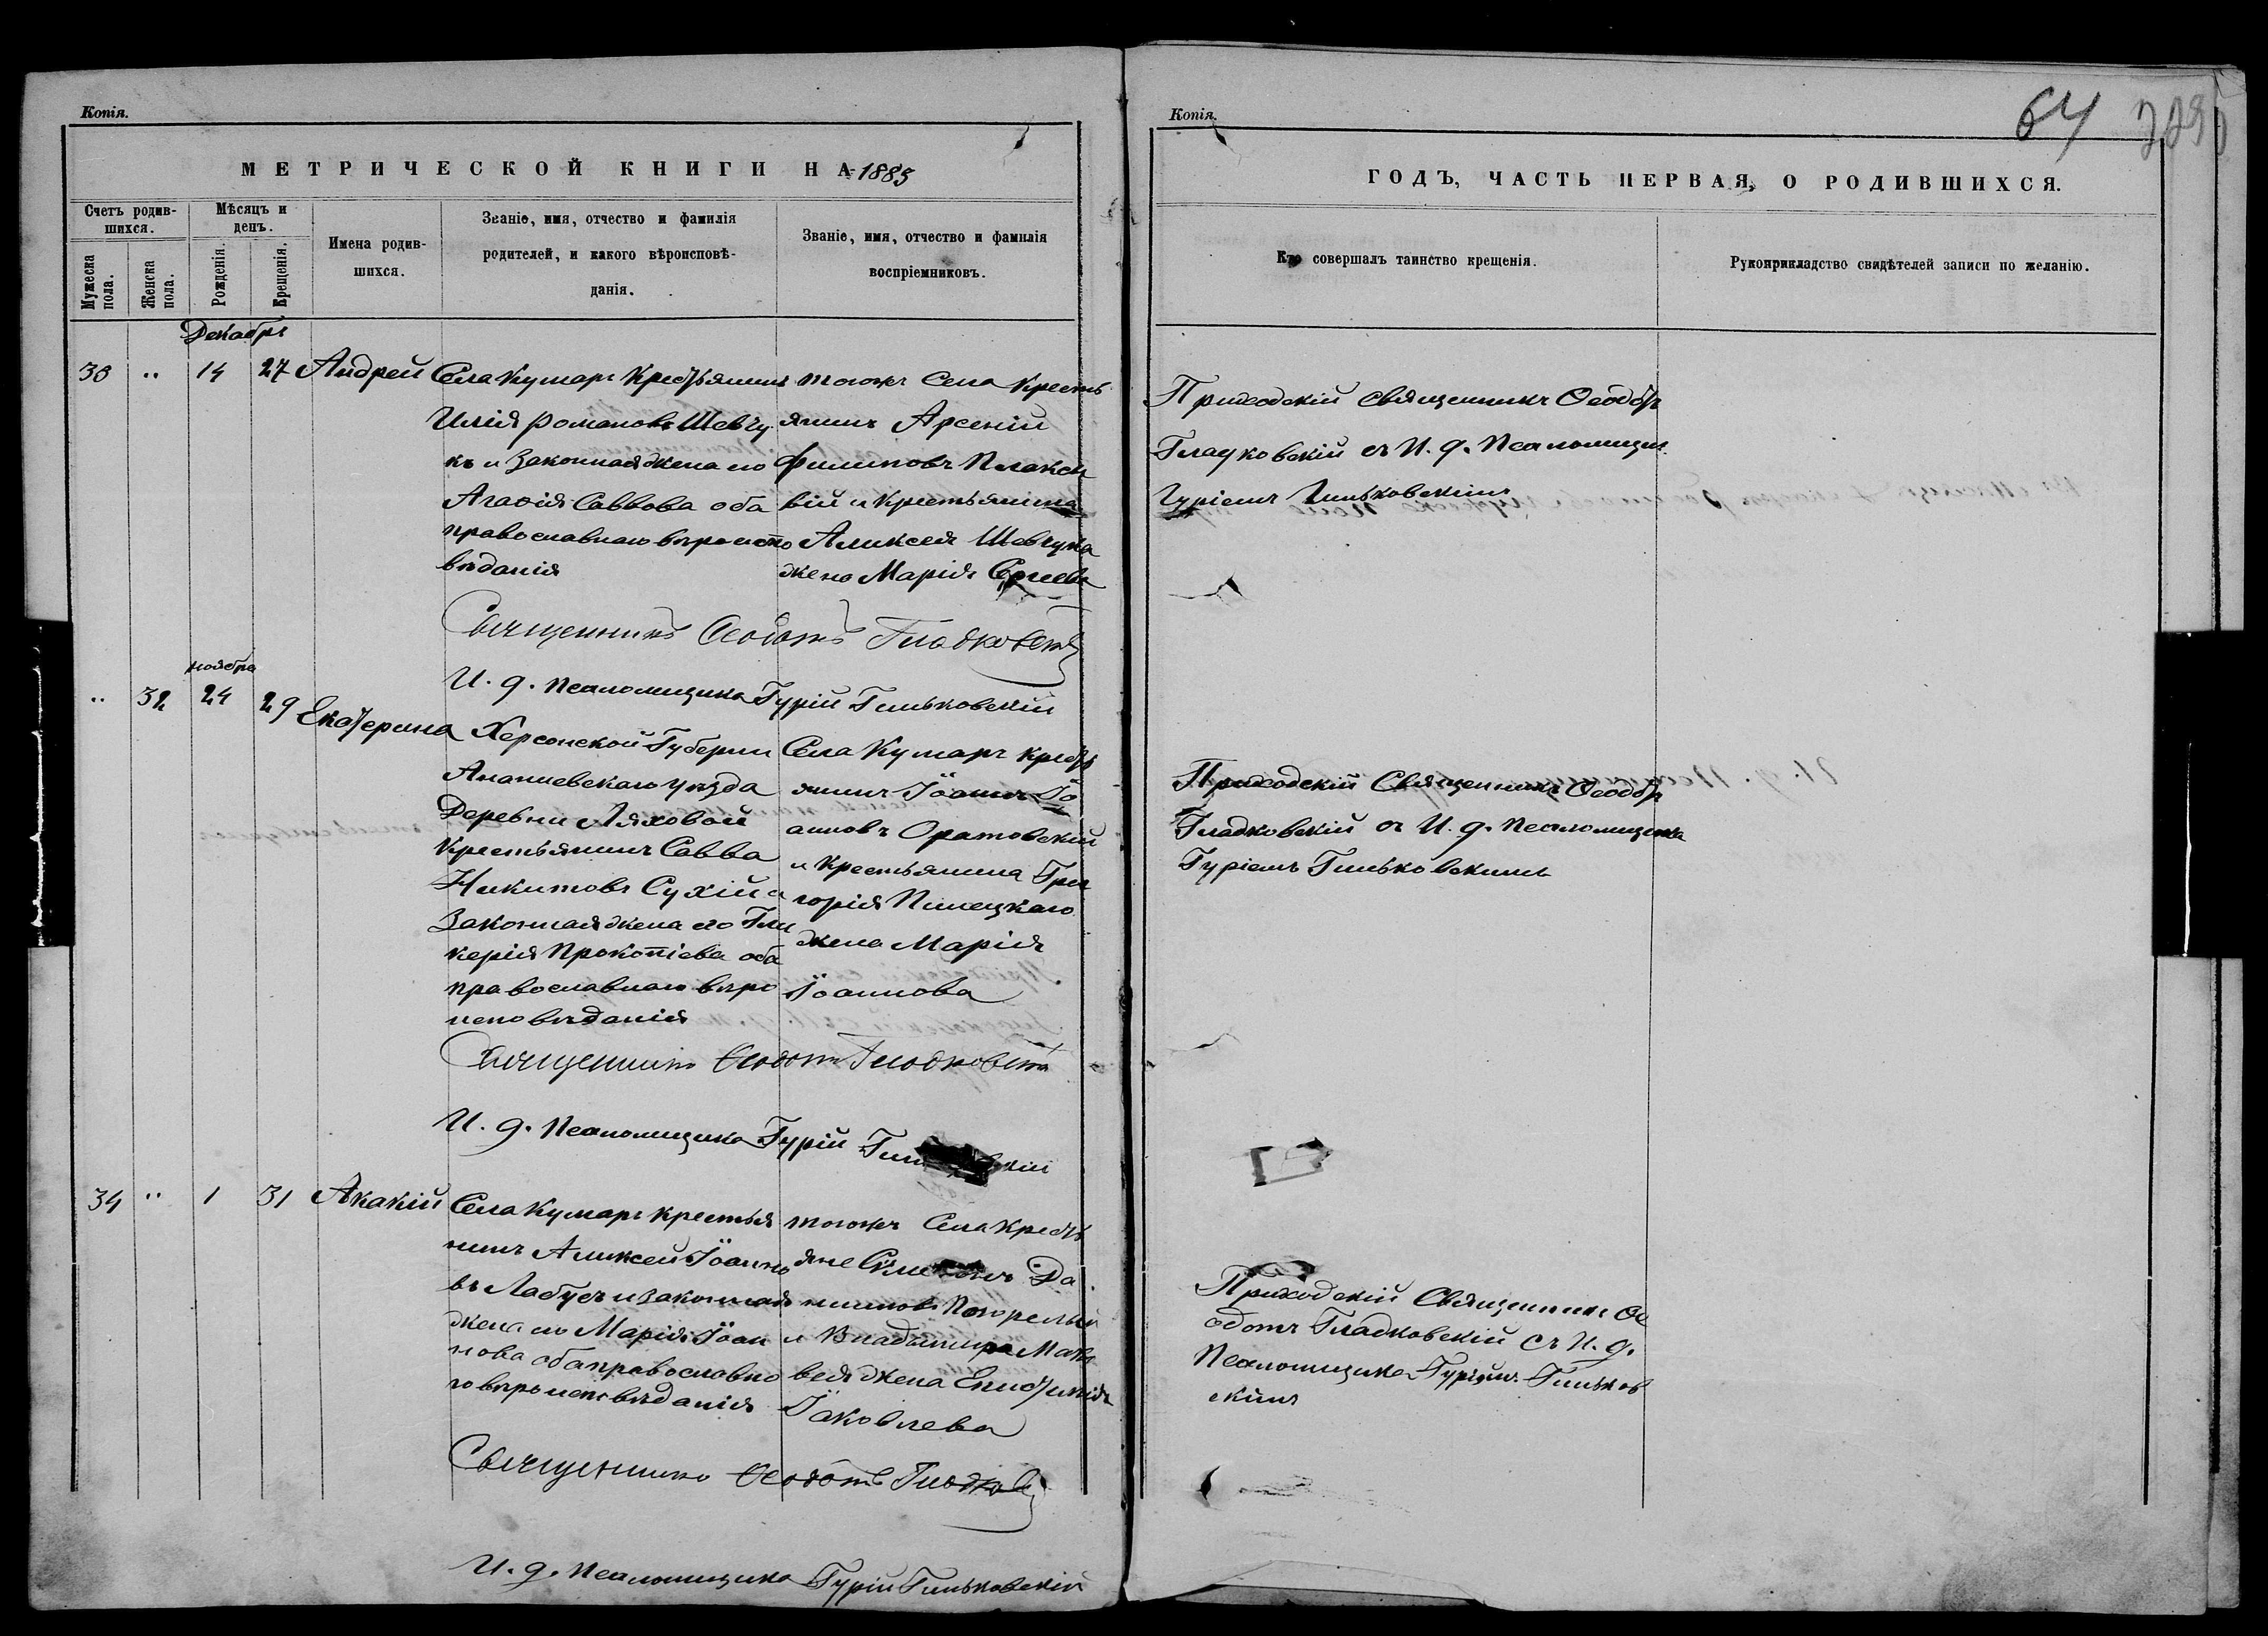 Копія.
МЕТРИЧЕСКОЙ КНИГИ НА 1885
Счетъ родив-
шихся.
Мѣсяцъ и
день.
Мужеска
пола.
Женска
пола.
Рожденія.
Крещенія.
Имена родив-
шихся.
Званіе, имя, отчество и фамилія
родителей, и какого вѣроисповѣ-
данія.
Званіе, имя, отчество и фамилія
воспріемниковъ.
Декабрь
14 27 Андрей
Села Кумаръ Крестьянинъ
Илія Романовъ Шевчу
къ и Законная жена его
Агафія Саввова оба
православнаго вѣроиспо
вѣданія
тогожъ Села Кресть
янинъ Арсеній
Филиповъ
и Крестьянина
Алексея Шевчука
жена Марія
Священникъ Ѳеодотъ Гладковскій
И. д. Псаломщика Гурій Гиньковскій
ноября
32 24 29 Екатерина
Херсонской Губерніи
Ананиевскаго уѣзда
Деревни Ляховой
Крестьянинъ Савва
Никитовъ Сухій и
Законная жена его Гли
керія Прокопіева оба
православнаго вѣро
исповѣданія
Села Кумаръ крестъ
янинъ Іоаннъ Іо
анновъ Оратовскій
и Крестьянина Гри
горія Пинецкаго
жена Марія
Іоаннова
Священникъ Ѳеодотъ Гладковскій
И. д. Псаломщика Гурій
34 1 31 Акакій
Села Кумаръ крестья
нинъ Алексей Іоанно
въ Лабусъ и законная
жена его Марія Іоан
нова оба православна
го вѣроисповѣданія
тогожъ Села Кресть
яне Да
ниловъ Погорелый
и Владимира Мат
вея жена
Іаковлева
Священникъ Ѳеодотъ Гладковскій
И. д. Псаломщика Гурій Гиньковскій
Копія.
64
ГОДЪ, ЧАСТЬ ПЕРВАЯ, О РОДИВШИХСЯ.
Кто совершалъ таинство крещенія.
Рукоприкладство свидѣтелей записи по желанію.
Приходскій Священникъ Ѳеодотъ
Гладковскій съ И. д. Псаломщика
Гуріемъ Гиньковскимъ
Приходскій Священникъ Ѳеодотъ
Гладковскій съ И. д. Псаломщика
Гуріемъ Гиньковскимъ
Приходскій Священникъ Ѳе
одотъ Гладковскій съ И. д.
Псаломщика Гуріемъ Гиньков
скимъ